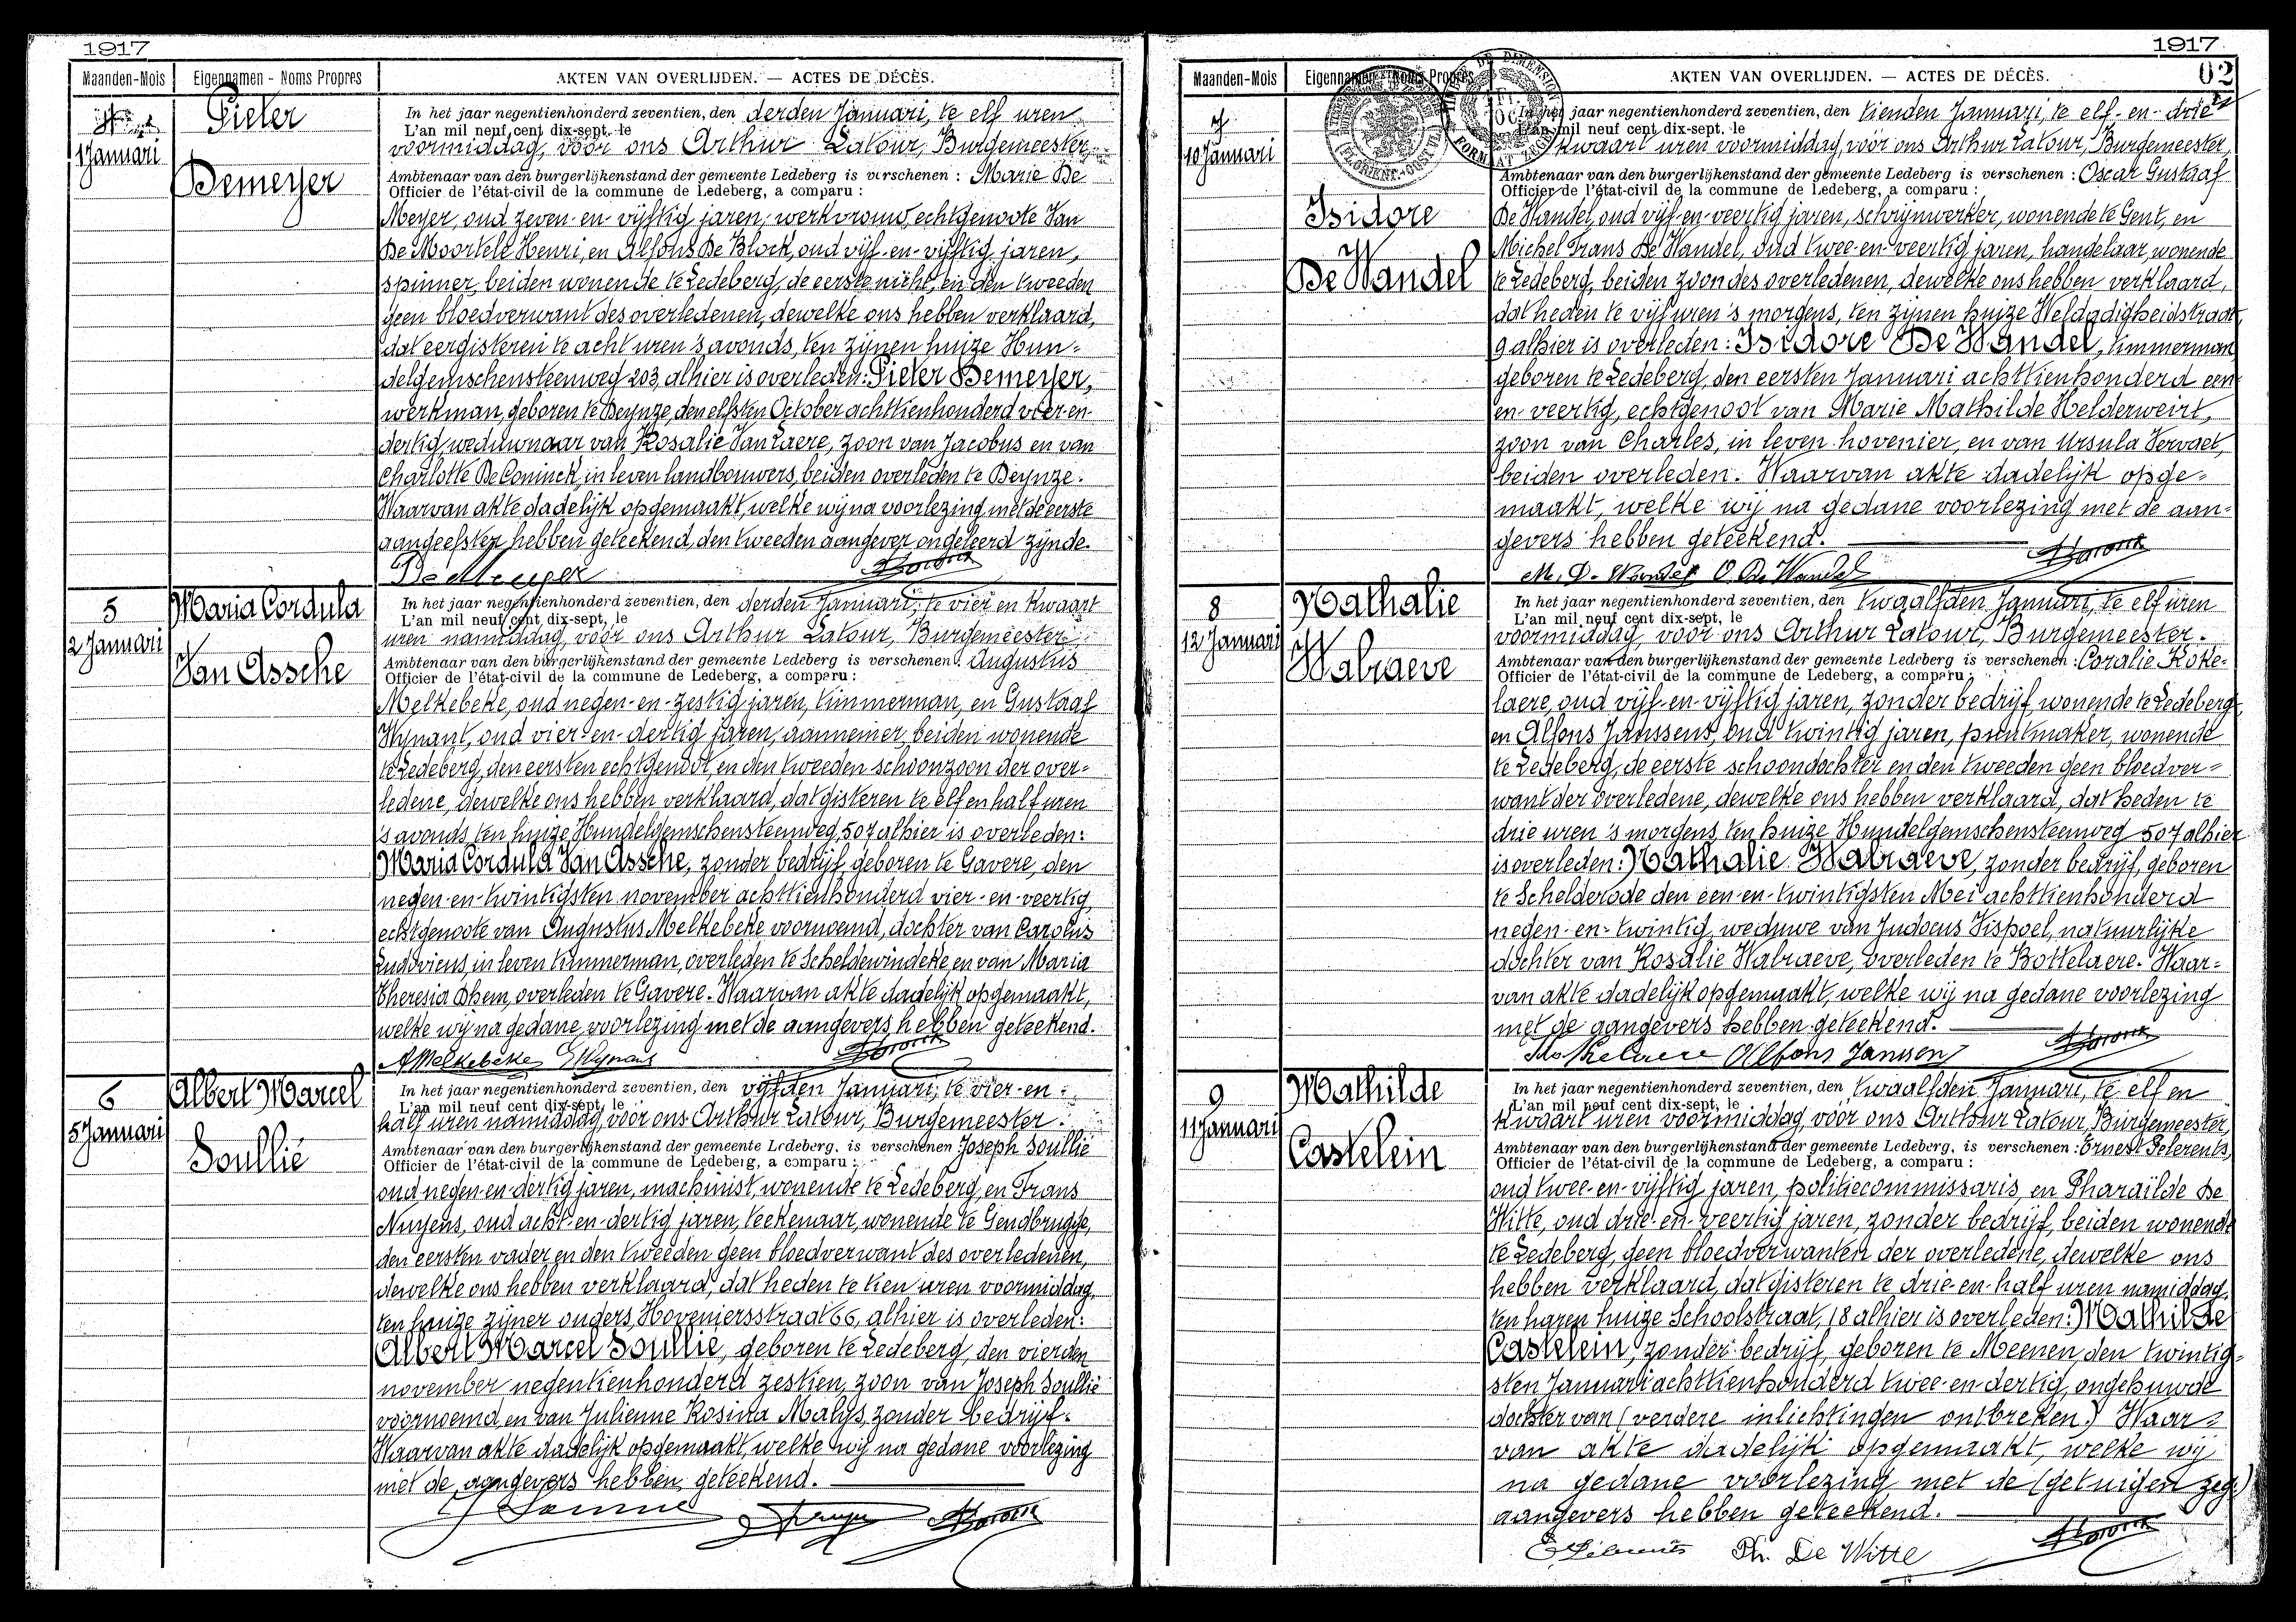 1917
Maanden-Mois
Eigennamen - Noms Propres
AKTEN VAN OVERLIJDEN. — ACTES DE DÉCÈS.
4
1 Januari
Pieter
Demeyer
In het jaar negentienhonderd zeventien, den derden Januari, te elf uren
L'an mil neuf cent dix-sept, le
voormiddag, vóór ons Arthur Latour, Burgemeester,
Ambtenaar van den burgerlijkenstand der gemeente Ledeberg is verschenen : Marie De
Officier de l'état-civil de la commune de Ledeberg, a comparu :
Meyer, oud zeven-en-vijftig jaren, werkvrouw, echtgenoote Van
De Moortele Henri, en Alfons De Block, oud vijf-en-vijftig jaren,
spinner, beiden wonende te Ledeberg, de eerste nicht, en den tweeden
geen bloedverwant des overledenen, dewelke ons hebben verklaard,
dat eergisteren te acht uren 's avonds, ten zijnen huize Hun-
delgemschensteenweg 203, alhier is overleden: Pieter Demeyer,
werkman, geboren te Deynze, den elfsten October achttienhonderd vier-en-
dertig, weduwnaar van Rosalie Van Laere, zoon van Jacobus en van
Charlotte De Coninck, in leven landbouwers, beiden overleden te Deynze.
Waarvan akte dadelijk opgemaakt, welke wij na voorlezing met de eerste
aangeefster hebben geteekend, den tweeden aangever ongeleerd zijnde.
De Meyer
5
2 Januari
Maria Cordula
Van Assche
In het jaar negentienhonderd zeventien, den derden Januari, te vier en kwaart
L'an mil neuf cent dix-sept, le
uren namiddag, vóór ons Arthur Latour, Burgemeester
Ambtenaar van den burgerlijkenstand der gemeente Ledeberg is verschenen : Augustus
Officier de l'état-civil de la commune de Ledeberg, a comparu :
Melkebeke, oud negen-en-zestig jaren, timmerman, en Gustaaf
Wynant, oud vier-en-dertig jaren, aannemer, beiden wonende
te Ledeberg, den eersten echtgenoot, en den tweeden schoonzoon der over-
ledene, dewelke ons hebben verklaard, dat gisteren te elf en half uren
's avonds, ten huize, Hundelgemschensteenweg, 507 alhier is overleden:
Maria Cordula Van Assche, zonder bedrijf, geboren te Gavere, den
negen-en-twintigsten november achttienhonderd vier-en-veertig,
echtgenoote van Augustus Melkebeke voornoemd, dochter van Carolus
Ludovicus, in leven timmerman, overleden te Scheldewindeke en van Maria
Theresia Dhem, overleden te Gavere. Waarvan akte dadelijk opgemaakt,
welke wij na gedane voorlezing met de aangevers hebben geteekend.
A Melkebeke G Wynant
6
5 Januari
Albert Marcel
Soullié
In het jaar negentienhonderd zeventien, den vijfden Januari, te vier-en-
L'an mil neuf cent dix-sept, le
half uren namiddag, vóór ons Arthur Latour, Burgemeester.
Ambtenaar van den burgerlijkenstand der gemeente Ledeberg, is verschenen Joseph Soullié
Officier de l'état-civil de la commune de Ledeberg, a comparu :
oud negen-en-dertig jaren, machinist, wonende te Ledeberg, en Frans
Nuyens, oud acht-en-dertig jaren, teekenaar, wonende te Gendbrugge,
den eersten vader en den tweeden geen bloedverwant des overledenen,
dewelke ons hebben verklaard, dat heden te tien uren voormiddag,
ten huize zijner ouders, Hoveniersstraat 66, alhier is overleden:
Albert Marcel Soullié, geboren te Ledeberg, den vierden
november negentienhonderd zestien, zoon van Joseph Soullié
voornoemd, en van Julienne Rosina Malys, zonder bedrijf.
Waarvan akte dadelijk opgemaakt, welke wij na gedane voorlezing
met de aangevers hebben geteekend.
1917
Maanden-Mois
Eigennamen - Noms Propres
AKTEN VAN OVERLIJDEN. — ACTES DE DÉCÈS.
02
7
10 Januari
Isidore
De Wandel
In het jaar negentienhonderd zeventien, den tienden Januari, te elf-en-drie
L'an mil neuf cent dix-sept, le
kwaart uren voormiddag, vóór ons Arthur Latour, Burgemeester,
Ambtenaar van den burgerlijkenstand der gemeente Ledeberg is verschenen : Oscar Gustaaf
Officier de l'état-civil de la commune de Ledeberg, a comparu :
De Wandel, oud vijf-en-veertig jaren, schrijnwerker, wonende te Gent, en
Michel Frans De Wandel, oud twee-en-veertig jaren, handelaar, wonende
te Ledeberg, beiden zoon des overledenen, dewelke ons hebben verklaard,
dat heden te vijf uren 's morgens, ten zijnen huize Weldadigheidstraat,
9 alhier is overleden: Isidore De Wandel, timmerman,
geboren te Ledeberg, den eersten Januari achttienhonderd een-
en-veertig, echtgenoot van Marie Mathilde Helderweirt,
zoon van Charles, in leven hovenier, en van Ursula Vervaet,
beiden overleden. Waarvan akte dadelijk opge-
maakt, welke wij na gedane voorlezing met de aan-
gevers hebben geteekend.
M. D. Wandel O. De Wandel
8
12 Januari
Nathalie
Walraeve
In het jaar negentienhonderd zeventien, den twaalfden Januari, te elf uren
L'an mil neuf cent dix-sept, le
voormiddag, vóór ons Arthur Latour, Burgemeester.
Ambtenaar van den burgerlijkenstand der gemeente Ledeberg is verschenen : Coralie Koke-
Officier de l'état-civil de la commune de Ledeberg, a comparu :
laere, oud vijf-en-vijftig jaren, zonder bedrijf, wonende te Ledeberg,
en Alfons Janssens, oud twintig jaren, prentmaker, wonende
te Ledeberg, de eerste schoondochter en den tweeden geen bloedver-
want der overledene, dewelke ons hebben verklaard, dat heden te
drie uren 's morgens, ten huize Hundelgemschensteenweg 507 alhier
is overleden: Nathalie Walraeve, zonder bedrijf, geboren
te Schelderode den een-en-twintigsten Mei achttienhonderd
negen-en-twintig, weduwe van Judocus Vispoel, natuurlijke
dochter van Rosalie Walraeve, overleden te Bottelaere. Waar-
van akte dadelijk opgemaakt, welke wij na gedane voorlezing
met de aangevers hebben geteekend.
Alfons Janssen
9
11 Januari
Mathilde
Castelein
In het jaar negentienhonderd zeventien, den twaalfden Januari, te elf en
L'an mil neuf cent dix-sept, le
kwaart uren voormiddag, vóór ons Arthur Latour, Burgemeester,
Ambtenaar van den burgerlijkenstand der gemeente Ledeberg, is verschenen : Ernest
Officier de l'état-civil de la commune de Ledeberg, a comparu :
oud twee-en-vijftig jaren, politiecommissaris, en Pharaïlde De
Witte, oud drie-en-veertig jaren, zonder bedrijf, beiden wonende
te Ledeberg, geen bloedverwanten der overledene, dewelke ons
hebben verklaard, dat gisteren te drie-en-half uren namiddag,
ten haren huize Schoolstraat, 18 alhier is overleden: Mathilde
Castelein, zonder bedrijf, geboren te Meenen, den twintig-
sten Januari achttienhonderd twee-en-dertig, ongehuwde
dochter van (verdere inlichtingen ontbreken.) Waar-
van akte dadelijk opgemaakt, welke wij
na gedane voorlezing met de (getuigen zeg.)
aangevers hebben geteekend.
Ph. De Witte